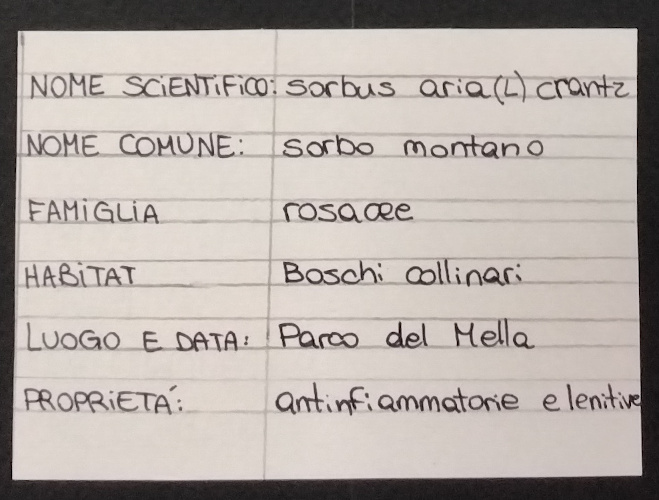 NOME SCIENTIFICO: sorbus aria (L) crantz
NOME COMUNE: sorbo montano
FAMIGLIA rosacee
HABITAT Boschi collinari
LUOGO E DATA: Parco del Mella
PROPRIETÁ: antinfiammatorie e lenitive